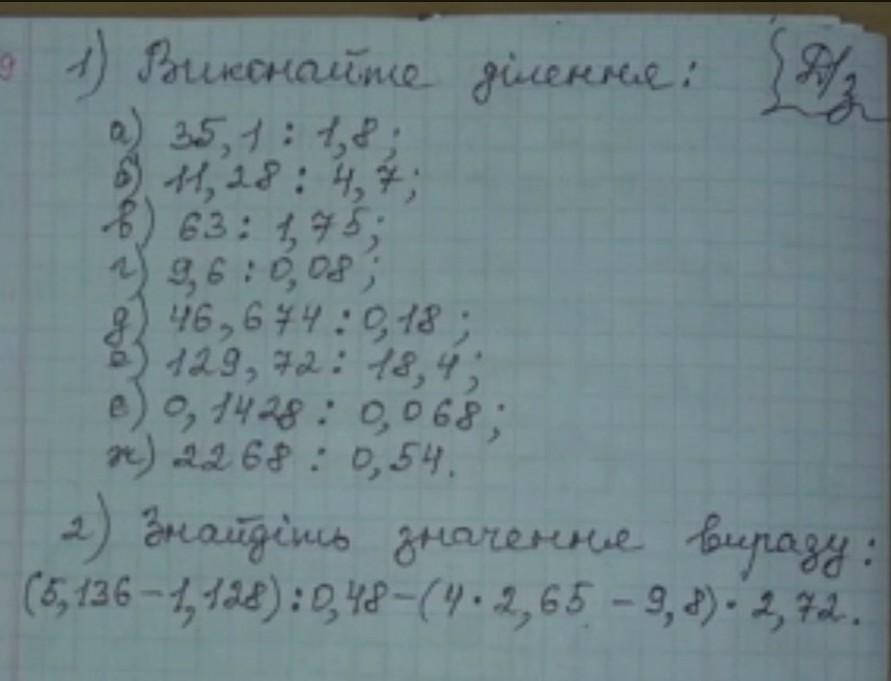 9
1) Виконайте ділення: Д/з
а) 35,1 : 1,8;
б) 11,28 : 4,7;
в) 63 : 1,75;
г) 9,6 : 0,08;
д) 46,674 : 0,18;
е) 129,72 : 18,4;
є) 0,1428 : 0,068;
ж) 2268 : 0,54.
2) Знайдіть значення виразу:
(5,136 - 1,128) : 0,48 - (4 · 2,65 - 9,8) · 2,72.